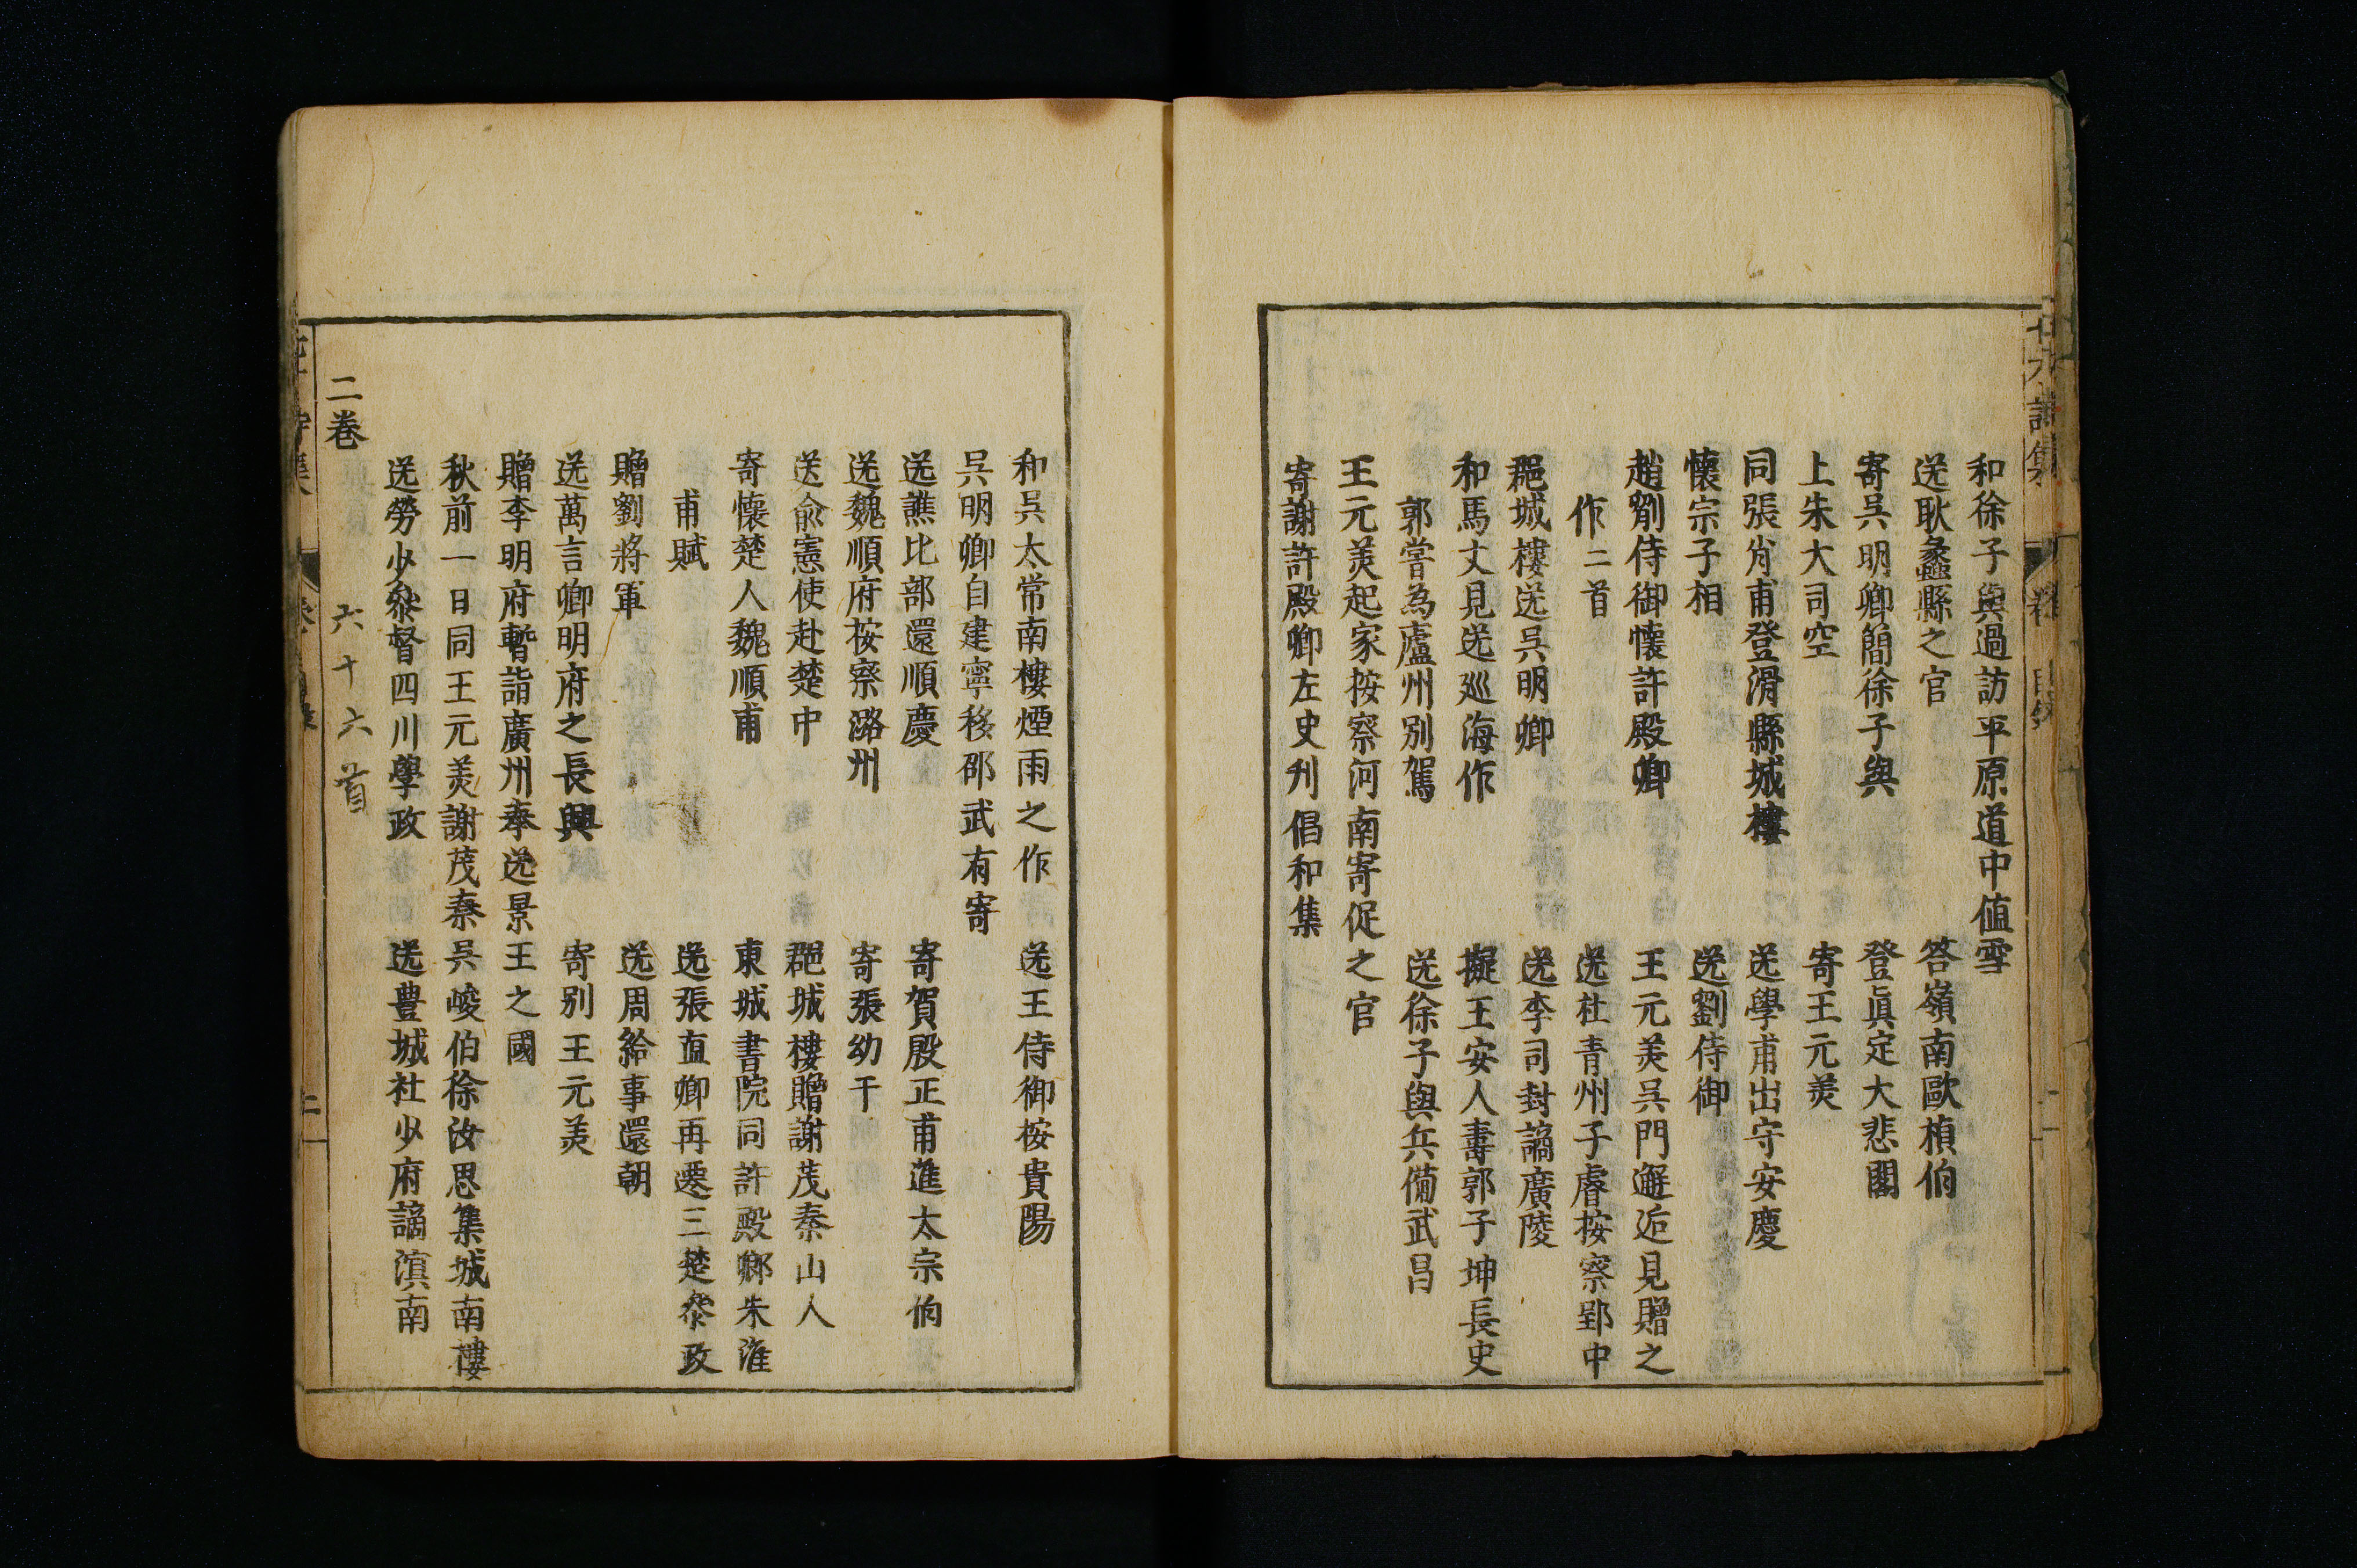 和徐子與過訪平原道中值雪
送耿蠡縣之官　答嶺南歐楨伯
寄吳明卿簡徐子與　登眞定大悲閣
上朱大司空　寄王元美
同張肖甫登滑縣城樓　送學甫出守安慶
懷宗子相　送劉侍御
趙劉侍御懷許殿卿　王元美吳門邂逅見贈之
作二首　送杜青州子睿按察郢中
郡城樓送吳明卿　送李司封謫廣陵
和馬丈見送巡海作　擬王安人壽郭子坤長史
郭嘗為廬州別駕　送徐子與兵備武昌
王元美起家按察河南寄促之官
寄謝許殿卿左史刋倡和集
和吳太常南樓煙雨之作　送王侍御按貴陽
吳明卿自建寧移邵武有寄
送譙比部還順慶　寄賀殷正甫進太宗伯
送魏順府按察潞州　寄張幼于
送俞憲使赴楚中　郡城樓贈謝茂秦山人
寄懷楚人魏順甫　東城書院同許殿卿朱淮
甫賦　送張直卿再遷三楚叅政
贈劉將軍　送周給事還朝
送萬言卿明府之長興　寄別王元美
贈李明府暫詣廣州奉送景王之國
秋前一日同王元美謝茂秦吳峻伯徐汝思集城南樓
送勞少叅督四川學政　送豊城杜少府謫滇南
二卷　六十六首